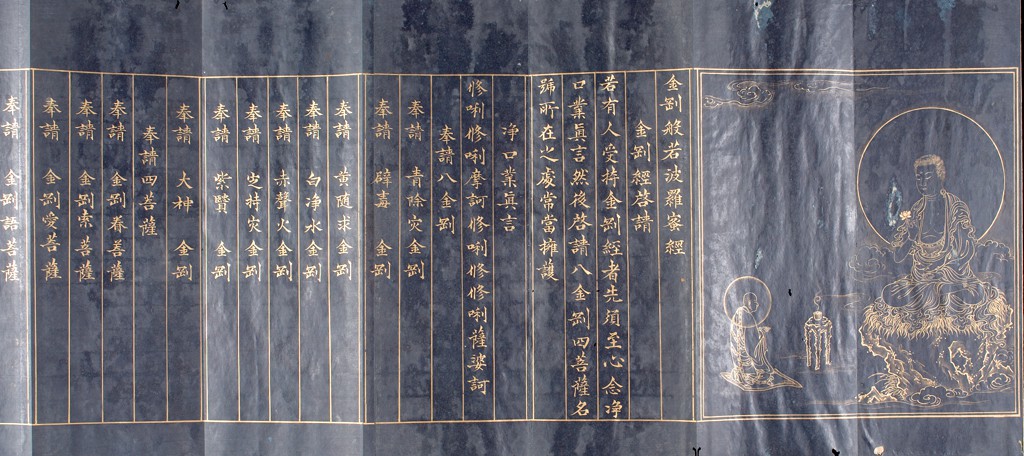 金剛般若波羅蜜經
金剛經啓請
若有人受持金剛經者先須至心念净
口業真言然後啓請八金剛四菩薩名
號所在之處常當擁護
净口業真言
修唎修唎摩訶修唎修修唎薩婆訶
奉請八金剛
奉請 青除灾金剛
奉請 辟毒 金剛
奉請 黄随求金剛
奉請 白净水金剛
奉請 赤聲火金剛
奉請 㝎持灾金剛
奉請 紫賢 金剛
奉請 大神 金剛
奉請四菩薩
奉請 金剛眷菩薩
奉請 金剛索菩薩
奉請 金剛愛菩薩
奉請 金剛語菩薩